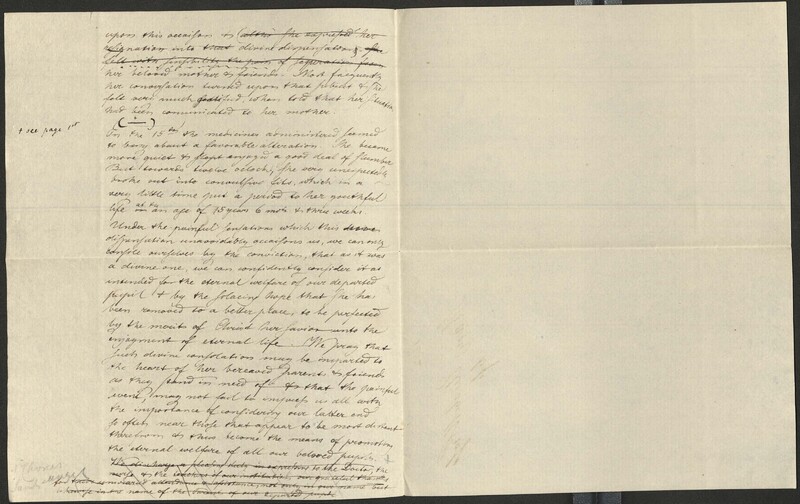 upon this occasion & (altho' she expressed her
resignation into that divine dispensation, she
felt with sensibility the pain of separation from
her beloved mother & friends. Most frequently
her conversation turned upon that subject & she
felt very much gratified, when told that her situation
had been communicated to her mother.
+ see page 1st
On the 15th the medicines administered seemed
to bring about a favorable alteration. She became
more quiet & enjoyed a good deal of slumber
But towards twelve oclock, she was unexpectedly
broke out into convulsive fits, which in a
very little time put a period to her youthful
life at an age of 15 years 6 mots & three weeks
Under the painful sensations which this
dispensation unavoidably occasions us, we can only
console ourselves by the conviction, that as it was
a divine one, we can confidently consider it as
intended for the eternal welfare of our departed
pupil & by the solacing hope that she has
been removed to a better place, to be perfected
by the merits of Christ her Savior unto the
enjoyment of eternal life. We pray that
such divine consolation may be imparted to
the heart of her bereaved parent & friends
as they stand in need of & that the painful
event, may not fail to impress us all with
the importance of considering our latter end
so often near those that appear to be most distant
therefrom & thus become the means of promoting
the eternal welfare of all our beloved pupils.
We discharge a pleasing duty in expressing to the Doctor, the
& the teachers of our institution, our
in the name of the parent of our departed pupil